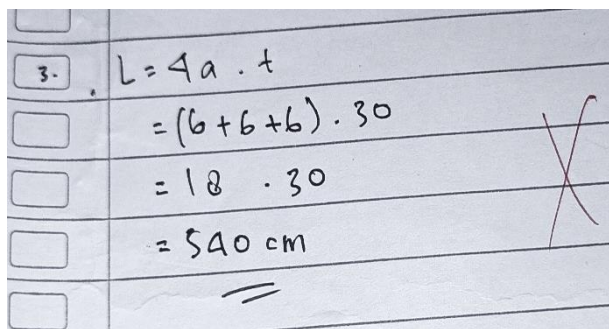 3. L = 4a . t
= (6+6+6) . 30
= 18 . 30
= 540 cm